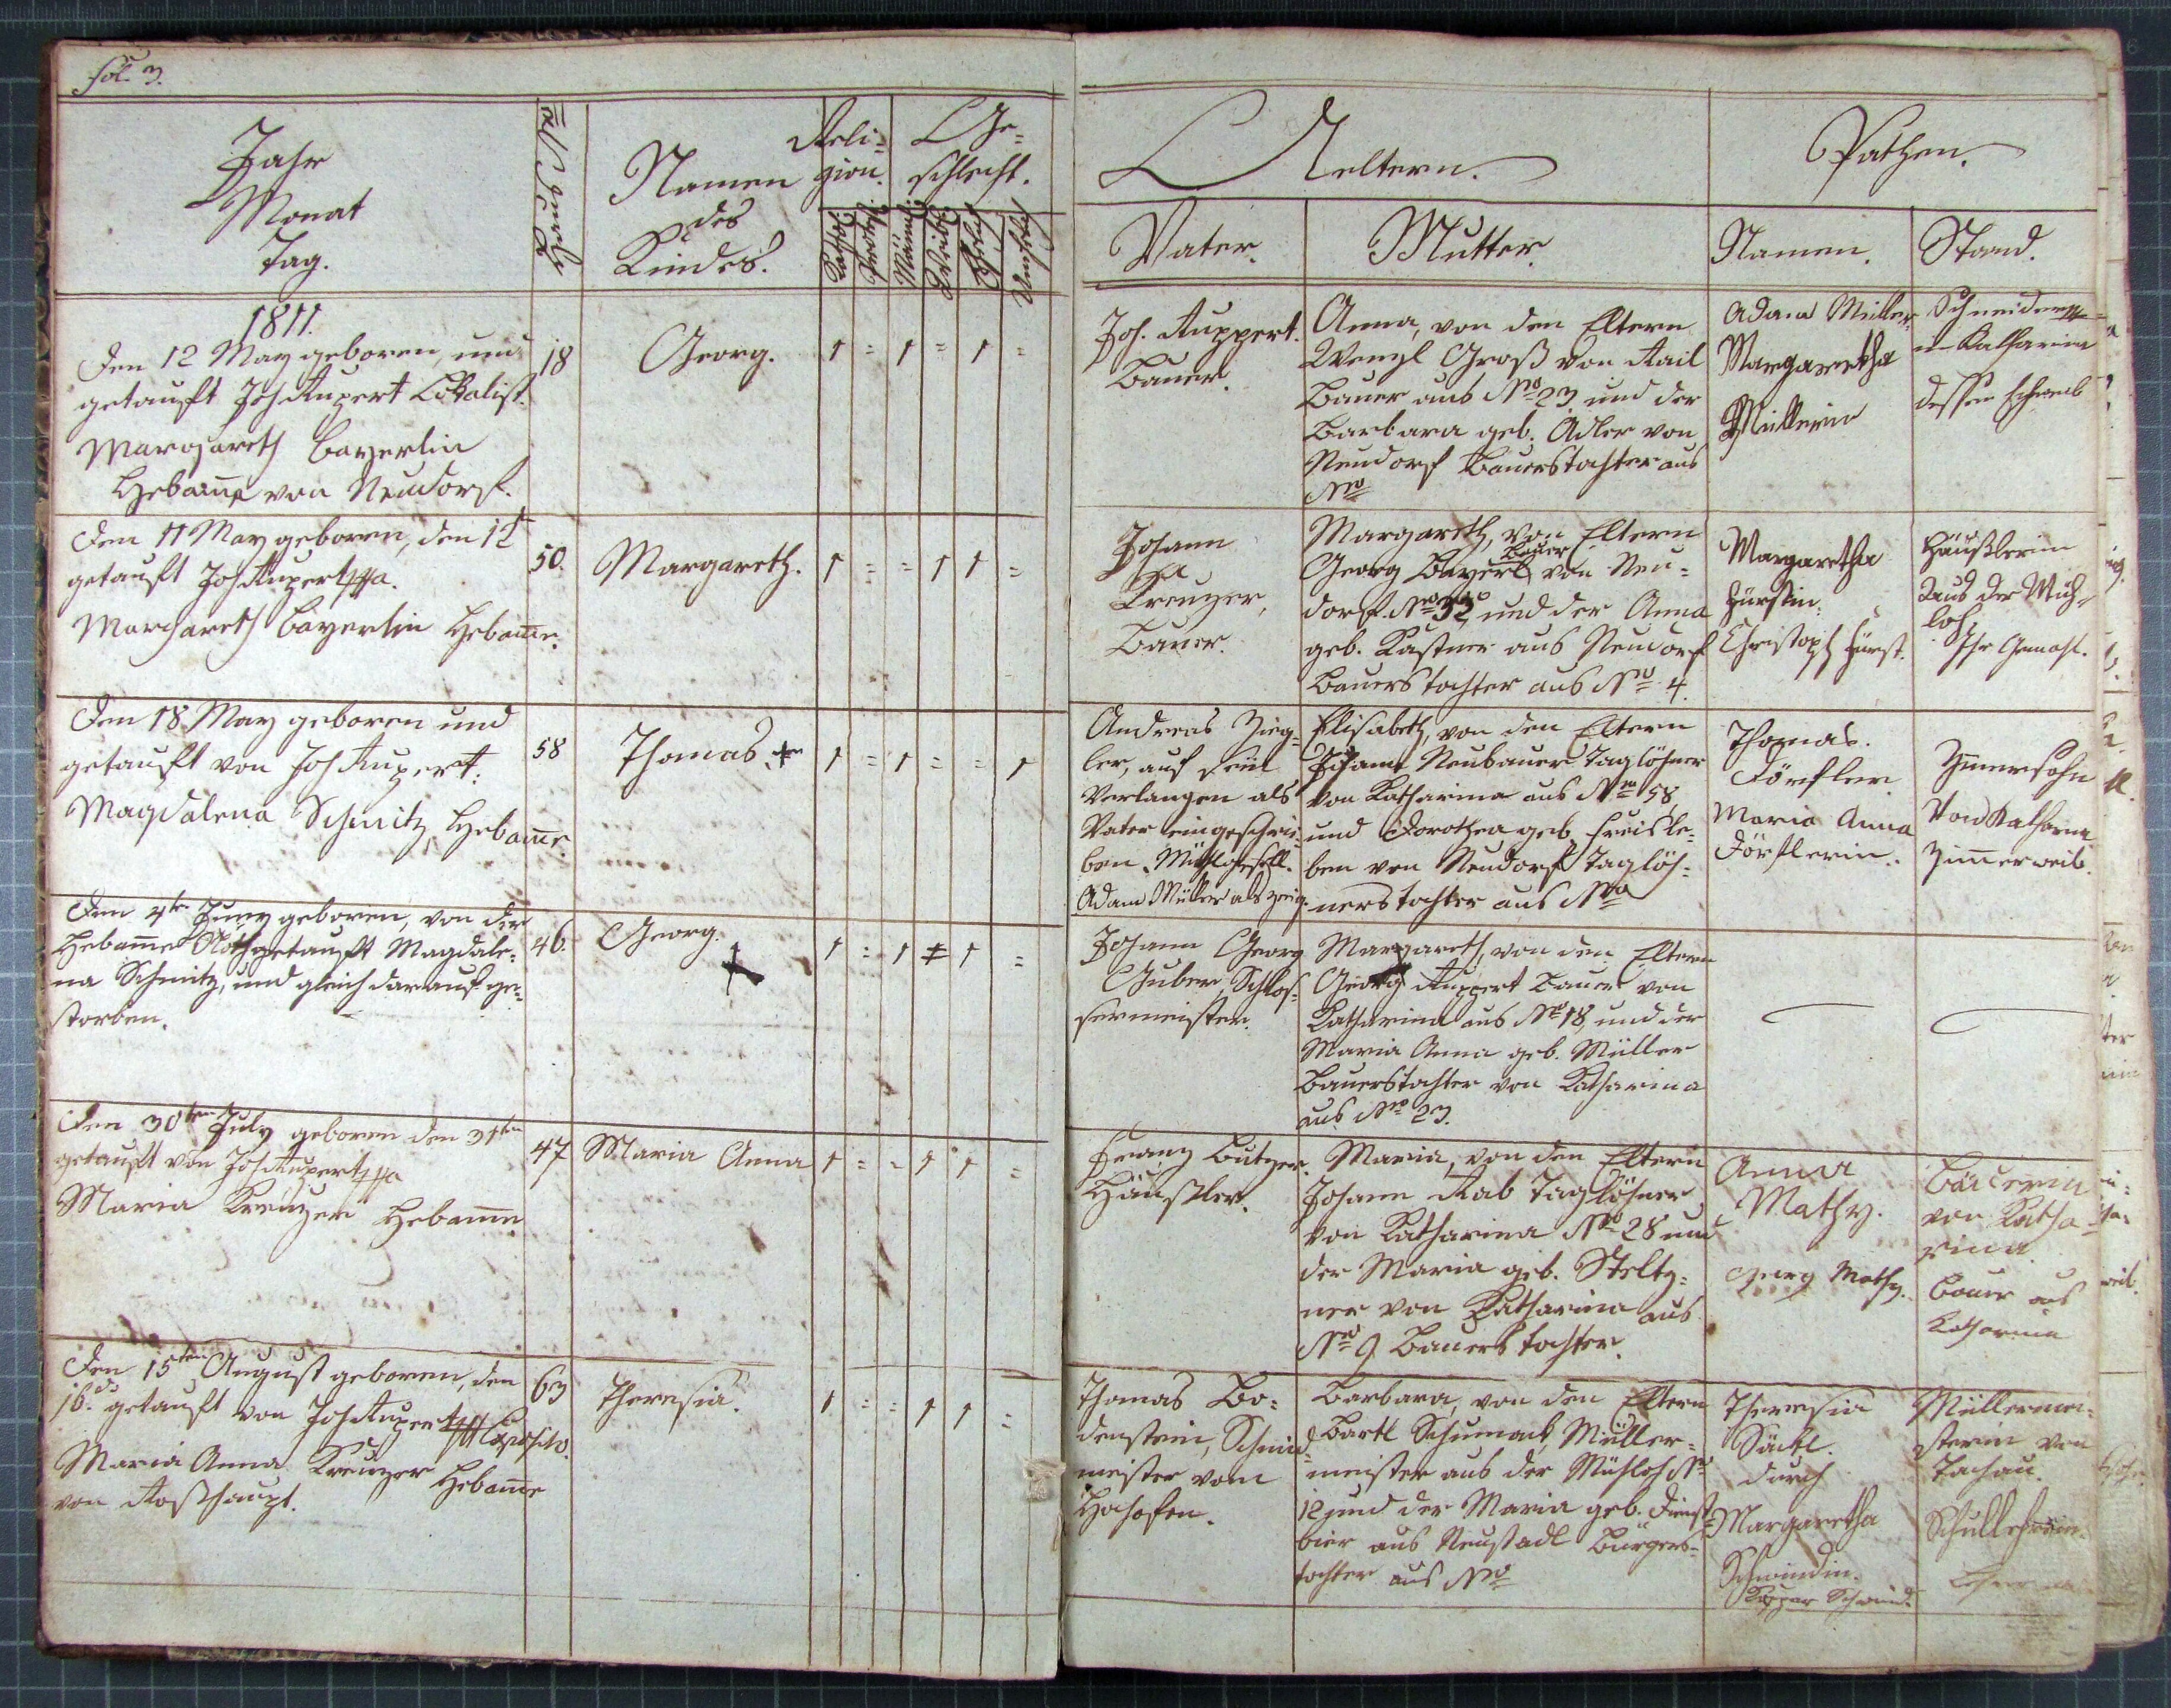 fol. 3.
Jahr
Monat
Tag.
Namen
des
Kindes.
Reli=
gion.
Ge=
schlecht.
Aeltern.
Pathen.
Vater.
Mutter.
Namen.
Stand.
1811.
Den 12 May geboren, und
getauft Joh Rupert Lokalist.
Margareth Bayerlin
Hebamme von Neudorf.
18
Georg.
1 = 1 = 1 =
Joh. Ruppert.
Bauer.
Anna, von den Eltern
Wenzl Groß von
Bauer aus Nro 23 und der
Barbara geb. Adler von
Neudorf Bauerstochter aus
Nro
Adam Müller
Margaretha
Müllerin
Schneider
Katharina
dessen Eheweib
Den 11 May geboren, den 12
getauft Joh Rupert
Margareth Bayerlin Hebamme.
50.
Margareth.
1 = = 1 1 =
Johann
Kreuzer,
Bauer.
Margareth, von Eltern
Georg Bayerl Bauer von Neu=
dorf Nro 32 und der Anna
geb. Kastner aus Neudorf
Bauerstochter aus Nro 4.
Margaretha
Fürstin.
Christoph Fürst.
Häußlerin
aus der Müh=
loh.
Ihr Gemahl.
Den 18 May geboren und
getauft von Joh Rupert.
Magdalena Schmitz, Hebamme.
58
Thomas.
1 = 1 = = 1
Andreas Zieg=
ler, auf sein
Verlangen als
Vater eingeschrie=
ben. Mühlgesell.
Adam Müller als Zeug.
Elisabeth, von den Eltern
Johann Neubauer Taglöhner
von Katharina aus Nro 58
und Dorothea geb.
ben von Neudorf Taglöh=
nerstochter aus Nro
Thomas
Dörfler.
Maria Anna
Dörflerin.
Zimersohn
von Katharina
Zimerweib.
Den 4ten Juny geboren, von der
Hebamme Nothgetauft Magdale=
na Schmitz, und gleich darauf ge=
storben.
46.
Georg.
1 = 1 = 1 =
Johann Georg
Huber, Schlos=
sermeister.
Margareth, von den Eltern
Georg Ruppert Bauer von
Katharina aus Nro 18 und der
Maria Anna geb. Müller
Bauerstochter von Katharina
aus Nro 23.
Den 30ten July geboren den 31ten
getauft von Joh Rupert
Maria Kreuzer Hebamme
47
Maria Anna
1 = = 1 1 =
Franz Butzer.
Häußler.
Maria, von den Eltern
Johann Rab Taglöhner
von Katharina Nro 28 und
der Maria geb. Steltz=
ner von Katharina aus
Nro 9 Bauerstochter.
Anna
Mathy.
Georg Mathy.
Bäuerin
von Katha=
rina
Bauer aus
Katharina
Den 15ten August geboren, den
16. do getauft von Joh Rupert
Maria Anna Kreuzer Hebamme
von Roßhaupt.
63
Theresia.
1 = = 1 1 =
Thomas Bo=
denstein, Schmid=
meister vom
Hohofen.
Barbara, von den Eltern
Bartl Schumack, Müller=
meister aus der Mühloh Nro
12 und der Maria geb. Dienst=
bier aus Neustadl Bürgers=
tochter aus Nro
Theresia
Säckl.
durch
Margaretha
Schwindin.
Kaspar Schwind.
Müllermei=
sterin von
Tachau.